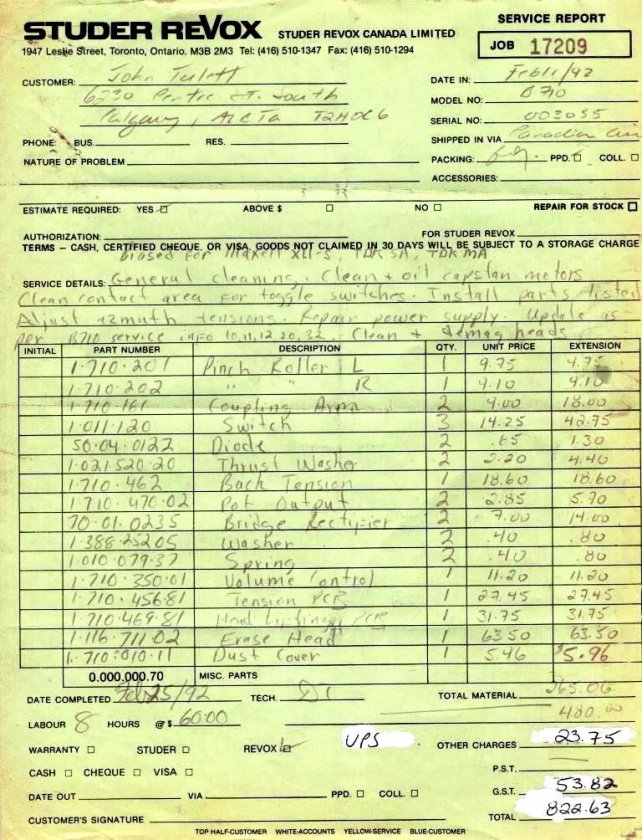 STUDER REVOX STUDER REVOX CANADA LIMITED
1947 Leslie Street, Toronto, Ontario. M3B 2M3 Tel: (416) 510-1347 Fax: (416) 510-1294
SERVICE REPORT
JOB 17209
CUSTOMER: John Tulett
6230 Centre St. South
Calgary, Alta T2H0C6
PHONE: BUS. RES.
NATURE OF PROBLEM
DATE IN: Feb 6/92
MODEL NO: B710
SERIAL NO: 003055
SHIPPED IN VIA Canadian Air
PACKING: PPD. COLL.
ACCESSORIES:
ESTIMATE REQUIRED: YES ABOVE $ NO REPAIR FOR STOCK
AUTHORIZATION: FOR STUDER REVOX
TERMS – CASH, CERTIFIED CHEQUE, OR VISA. GOODS NOT CLAIMED IN 30 DAYS WILL BE SUBJECT TO A STORAGE CHARGE
Biased for Maxell XLII-S, TDK SA, TDK MA
SERVICE DETAILS: General cleaning. Clean + oil capstan motors
Clean contact area for toggle switches. Install parts listed
Adjust azmuth tensions. Repair power supply. Update as
per B710 service info 10, 11, 12, 20, 32. Clean + demag heads
INITIAL PART NUMBER DESCRIPTION QTY. UNIT PRICE EXTENSION
1.710.201 Pinch Roller L 1 9.75 9.75
1.710.202 " " R 1 9.10 9.10
1.710.161 Coupling Arm 2 9.00 18.00
1.011.120 Switch 3 14.25 42.75
50.04.0122 Diode 2 .65 1.30
1.021.520.20 Thrust Washer 2 2.20 4.40
1.710.462 Back Tension 1 18.60 18.60
1.710.470.02 Pot Output 2 2.85 5.70
70.01.0235 Bridge Rectifier 2 7.00 14.00
1.388.25205 Washer 2 .40 .80
1.010.079.37 Spring 2 .40 .80
1.710.350.01 Volume Control 1 11.20 11.20
1.710.456.81 Tension PCB 1 27.45 27.45
1.710.469.81 Head PCB 1 31.75 31.75
1.116.711.02 Erase Head 1 63.50 63.50
1.710.010.11 Dust Cover 1 5.46 $5.96
0.000.000.70 MISC. PARTS
DATE COMPLETED Feb 25/92 TECH. TOTAL MATERIAL 265.06
LABOUR 8 HOURS @ $ 60.00 480.00
WARRANTY STUDER REVOX UPS OTHER CHARGES 23.75
CASH CHEQUE VISA P.S.T.
DATE OUT VIA PPD. COLL. G.S.T. 53.82
CUSTOMER'S SIGNATURE TOTAL 822.63
TOP HALF-CUSTOMER WHITE-ACCOUNTS YELLOW-SERVICE BLUE-CUSTOMER